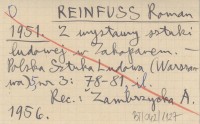 O REINFUSS Roman
1951. Z wystawy sztuki
ludowej w Zakopanem. —
Polska Sztuka Ludowa (Warszawa)
5, nr 3: 78-81, il.
Rec.: Zambrzycka A.
1956.